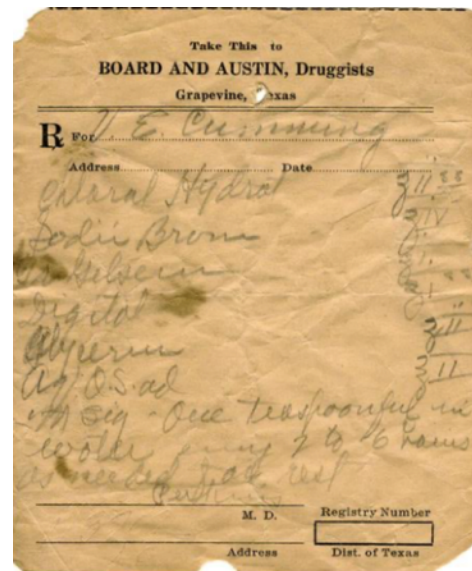 Take This to
BOARD AND AUSTIN, Druggists
Grapevine, Texas
℞ For V E. Cumming
Address Date
Chloral Hydrat ʒii ss
Sodii Brom ʒiv
Gelsem
Digital
Glycerin ʒii
Aq Q.S. ad ʒii
M Sig - One teaspoonful in
water every 2 to 6 hours
as needed for rest
Perkins
M. D. Registry Number
Address Dist. of Texas